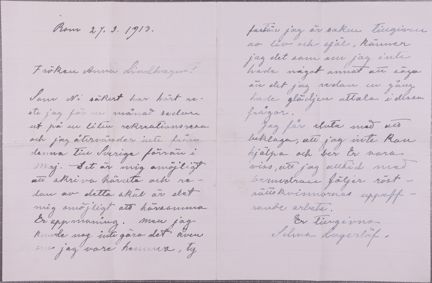 Rom 27. 3. 1913.
Fröken Anna Lindhagen!
Som Ni säkert har hört re-
ste jag för en månad sedan
ut på en liten rekreationsresa
och jag återvänder inte
denna till Sverige förrän i
maj. Det är mig omöjligt
att skriva härute och re-
dan av detta skäl är det
mig omöjligt att hörsamma
Er uppmaning. Men jag
kunde nog inte göra det även
om jag vore hemma, ty
fastän jag är saken tillgiven
av liv och själ, känner
jag det som om jag inte
hade något annat att säga
än det jag redan en gång
hade glädjen uttala i dessa
frågor.
Jag får sluta med att
beklaga, att jag inte kan
hjälpa och ber Er vara
viss, att jag alltid med
beundran följer röst-
rättskvinnornas uppoff-
rande arbete.
Er tillgivna
Selma Lagerlöf.